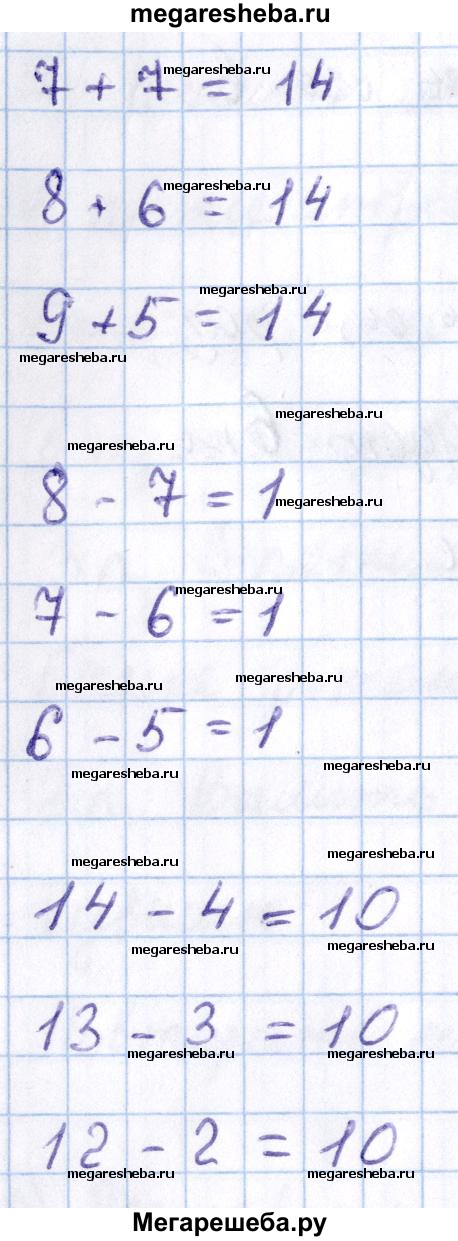 megaresheba.ru
7 + 7 = 14
megaresheba.ru
8 + 6 = 14
megaresheba.ru
megaresheba.ru
9 + 5 = 14
megaresheba.ru
megaresheba.ru
megaresheba.ru
8 - 7 = 1
megaresheba.ru
megaresheba.ru
7 - 6 = 1
megaresheba.ru
megaresheba.ru
6 - 5 = 1
megaresheba.ru
megaresheba.ru
megaresheba.ru
megaresheba.ru
14 - 4 = 10
megaresheba.ru
megaresheba.ru
13 - 3 = 10
megaresheba.ru
megaresheba.ru
12 - 2 = 10
megaresheba.ru
megaresheba.ru
Мегарешеба.ру